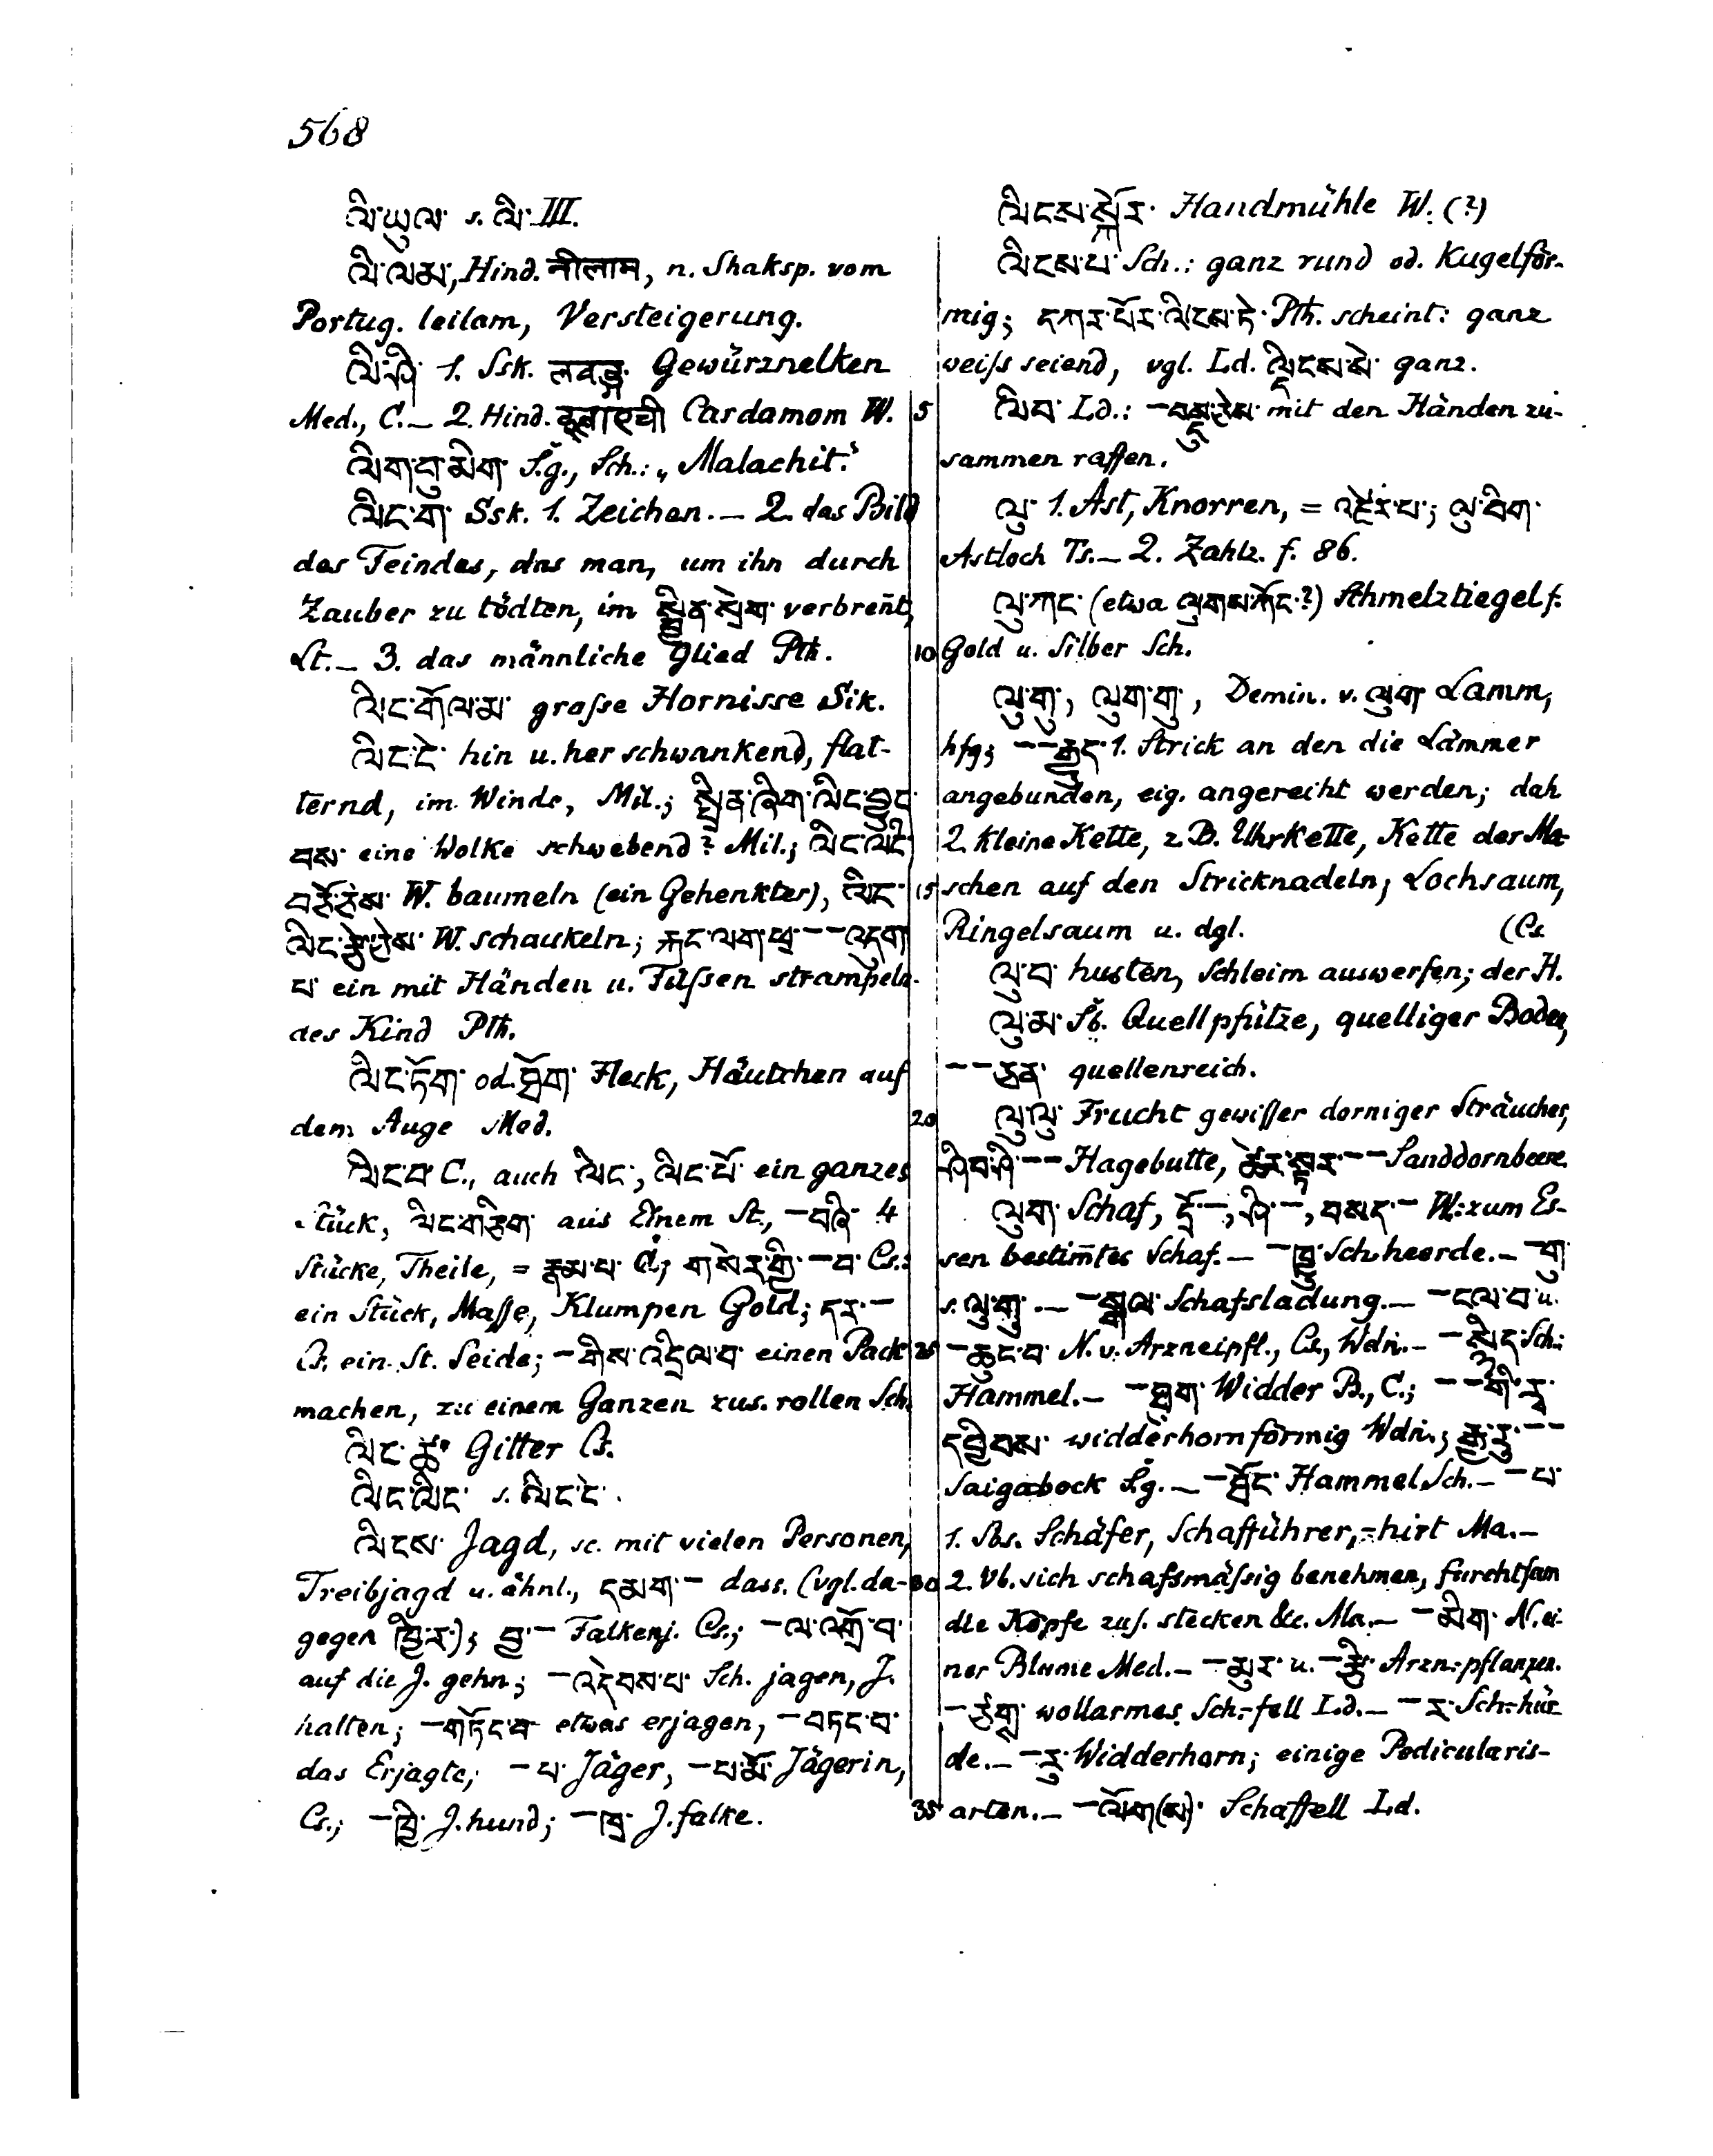 568
ལི་ཡུལ་ s. ལི་ III.
ལི་ལམ་, Hind. नीलाम, n. Shaksp. vom
Portug. leilam, Versteigerung.
ལི་ཤི་ 1. Ssk. लवङ्ग Gewürznelken
Med., C. — 2. Hind. Cardamom W.
ལིག་བུ་མིག་ S.g., Sch.: „Malachit."
ལིང་ག་ Ssk. 1. Zeichen. — 2. das Bild
des Feindes, das man, um ihn durch
Zauber zu tödten, im སྦྱིན་སྲེག་ verbreñt,
Lt. — 3. das männliche Glied Pth.
ལིང་གོལ་མ་ grosse Hornisse Sik.
ལིང་ངེ་ hin u. her schwankend, flat-
ternd, im Winde, Mil.; སྤྲིན་ཞིག་ལིང་བྱུང་
བས་ eine Wolke schwebend? Mil.; ལིང་ལིང་
W. baumeln (ein Gehenkter), ལིང་
ལིང་རྩེ་ཅེས་ W. schaukeln; རྐང་ལག་ཕྲ་ — — འདུག
པ་ ein mit Händen u. Füssen strampeln-
des Kind Pth.
ལིང་ཏོག་ od. ཐོག་ Fleck, Häutchen auf
dem Auge Med.
ལིང་བ་ C., auch ལིང་, ལིང་པོ་ ein ganzes
Stück, ལིང་གཅིག་ aus Einem St., — བཞི་ 4
Stücke, Theile, = རྣམ་པ་ C.; གསེར་གྱི་ — བ་ Cs.:
ein Stück, Masse, Klumpen Gold; དར་ —
Cs. ein St. Seide; — གིས་འདྲིལ་བ་ einen Pack
machen, zu einem Ganzen zus. rollen Sch.
ལིང་ཚེ་ Gitter Cs.
ལིང་ལིང་ s. ལིང་ངེ་.
ལིངས་ Jagd, sc. mit vielen Personen,
Treibjagd u. ähnl., དམག་ — dass. (vgl. da-
gegen ཁྱི་ར་); བྱ་ — Falkenj. Cs.; — ལ་འགྲོ་བ་
auf die J. gehn; — འདེབས་པ་ Sch. jagen, J.
halten; — གཏོང་བ་ etwas erjagen, — བཏང་བ་
das Erjagte; — པ་ Jäger, — པ་མོ་ Jägerin,
Cs.; — ཁྱི་ J. hund; — ཁྲ་ J. falke.
5
10
15
20
25
30
35
ལིངས་སྐོར་ Handmühle W. (?)
ལིངས་པ་ Sch.: ganz rund od. kugelför-
mig; དཀར་པོར་ལིངས་ཏེ་ Pth. scheint: ganz
weiss seiend, vgl. Ld. ལྡིངས་སེ་ ganz.
ལིབ་ Ld.: — བསྡུ་ཅེས་ mit den Händen zu-
sammen raffen.
ལུ་ 1. Ast, Knorren, = འཛེར་པ་; ལུ་མིག་
Astloch Ts. — 2. Zahlz. f. 86.
ལུ་ཀང་ (etwa ལུགས་ཀོང་?) Schmelztiegel f.
Gold u. Silber Sch.
ལུ་གུ་, ལུག་གུ་, Demin. v. ལུག་ Lamm,
hfg; — — རྒྱུད་ 1. Strick an den die Lämmer
angebunden, eig. angereiht werden; dah
2. kleine Kette, z. B. Uhrkette, Kette der Ma-
schen auf den Stricknadeln; Lochsaum,
Ringelsaum u. dgl. (Cs.
ལུ་བ་ husten, Schleim auswerfen; der H.
ལུ་མ་ Sb. Quellpfütze, quelliger Boden,
— — ཅན་ quellenreich.
ལུ་ལུ་ Frucht gewisser dorniger Sträucher,
— — Hagebutte, — — Sanddornbeere.
ལུག་ Schaf, — W.: zum Es-
sen bestim̄tes Schaf. — — ཁྱུ་ Sch. heerde. — — གུ་
s. ལུ་གུ་. — — སྒལ་ Schafsladung. — — ངལ་བ་ u.
— ཆུང་བ་ N. v. Arzneipfl., Cs., Wdn. — Sch.:
Hammel. — — ཐུག་ Widder B., C.; — — གི་རྭ་
དབྱིབས་ widderhornförmig Wdn.; རྒྱ་རུ་ — —
Saigabock S.g. — — ཐོང་ Hammel Sch. — — པ་
1. Sbs. Schäfer, Schafführer, -hirt Ma. —
2. Vb. sich schafsmässig benehmen, furchtsam
die Köpfe zus. stecken &c. Ma. — — མིག་ N. ei-
ner Blume Med. — — མུར་ u. — རྩི་ Arzn.-pflanzen.
— wollarmes Sch.-fell Ld. — — ར་ Sch.-hür-
de. — — རུ་ Widderhorn; einige Pedicularis-
arten. — — ལོག་(ས)་ Schaffell Ld.